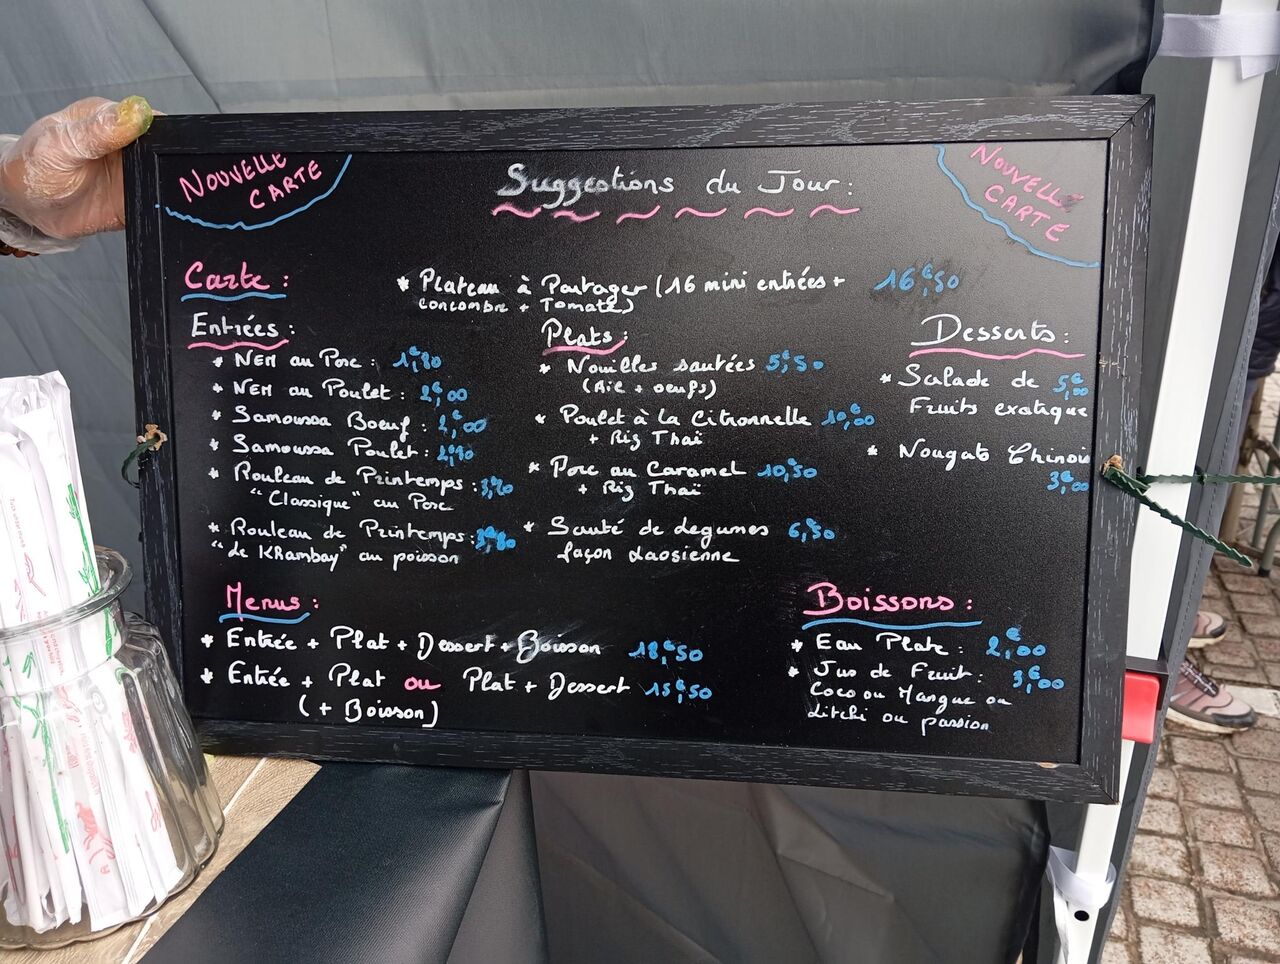 NOUVELLE
CARTE
Suggestions du Jour :
NOUVELLE
CARTE
Carte :
* Plateau à Partager (16 mini entrées + 16€,50
concombre + Tomate)
Entrées :
* NEM au Porc : 1€,80
* NEM au Poulet : 2€,00
* Samoussa Boeuf : 2€,00
* Samoussa Poulet :
* Rouleau de Printemps :
"Classique" au Porc
* Rouleau de Printemps :
"de KHambay" au poisson
Plats :
* Nouilles sautées 5€,50
(Ail + oeufs)
* Poulet à la Citronnelle 10€,00
+ Riz Thaï
* Porc au Caramel 10€,50
+ Riz Thaï
* Sauté de légumes 6€,50
façon Laosienne
Desserts :
* Salade de 5€,00
Fruits exotique
* Nougats Chinois
3€,00
Menus :
* Entrée + Plat + Dessert + Boisson 18€,50
* Entrée + Plat ou Plat + Dessert 15€,50
(+ Boisson)
Boissons :
* Eau Plate : 2€,00
* Jus de Fruit : 3€,00
Coco ou Mangue ou
Litchi ou passion